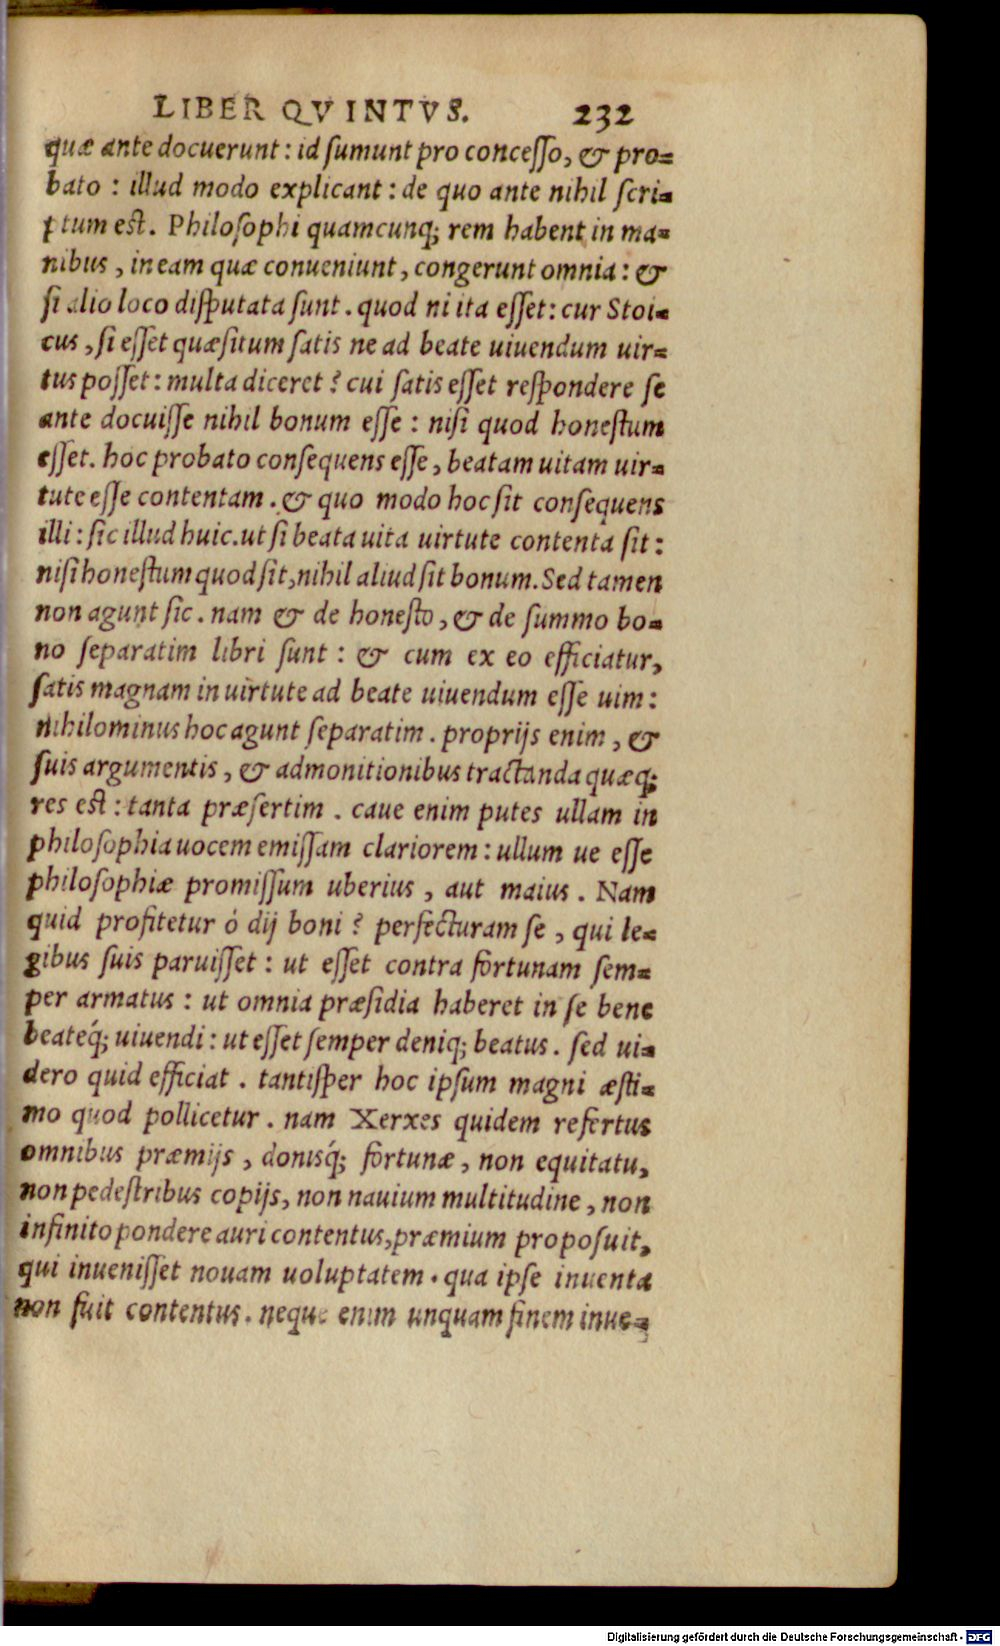 LIBER QVINTVS. 232
quæ ante docuerunt: id ſumunt pro conceſſo, & pro=
bato : illud modo explicant : de quo ante nihil ſcri=
ptum est. Philoſophi quamcunq; rem habent in ma=
nibus, in eam quæ conueniunt, congerunt omnia: &
ſi alio loco diſputata ſunt. quod ni ita eſſet: cur Stoi=
cus, ſi eſſet quæſitum ſatis ne ad beate uiuendum uir=
tus poſſet: multa diceret? cui ſatis eſſet reſpondere ſe
ante docuiſſe nihil bonum eſſe : niſi quod honeſtum
eſſet. hoc probato conſequens eſſe, beatam uitam uir=
tute eſſe contentam. & quo modo hoc ſit conſequens
illi: ſic illud huic. ut ſi beata uita uirtute contenta ſit:
niſi honeſtum quod ſit, nihil aliud ſit bonum. Sed tamen
non agunt ſic. nam & de honeſto, & de ſummo bo=
no ſeparatim libri ſunt : & cum ex eo efficiatur,
ſatis magnam in uirtute ad beate uiuendum eſſe uim:
nihilominus hoc agunt ſeparatim. proprijs enim, &
ſuis argumentis, & admonitionibus tractanda quæq;
res est: tanta præſertim. caue enim putes ullam in
philoſophia uocem emiſſam clariorem: ullum ue eſſe
philoſophiæ promiſſum uberius, aut maius. Nam
quid profitetur ó dij boni? perfecturam ſe, qui le=
gibus ſuis paruiſſet : ut eſſet contra fortunam ſem=
per armatus : ut omnia præſidia haberet in ſe bene
beateq́; uiuendi: ut eſſet ſemper deniq; beatus. ſed ui=
dero quid efficiat. tantiſper hoc ipſum magni æſti=
mo quod pollicetur. nam Xerxes quidem refertus
omnibus præmijs, donisq́; fortunæ, non equitatu,
non pedeſtribus copijs, non nauium multitudine, non
infinito pondere auri contentus, præmium propoſuit,
qui inueniſſet nouam uoluptatem. qua ipſe inuenta
non fuit contentus. neque enim unquam finem inue=
Digitalisierung gefördert durch die Deutsche Forschungsgemeinschaft - DFG